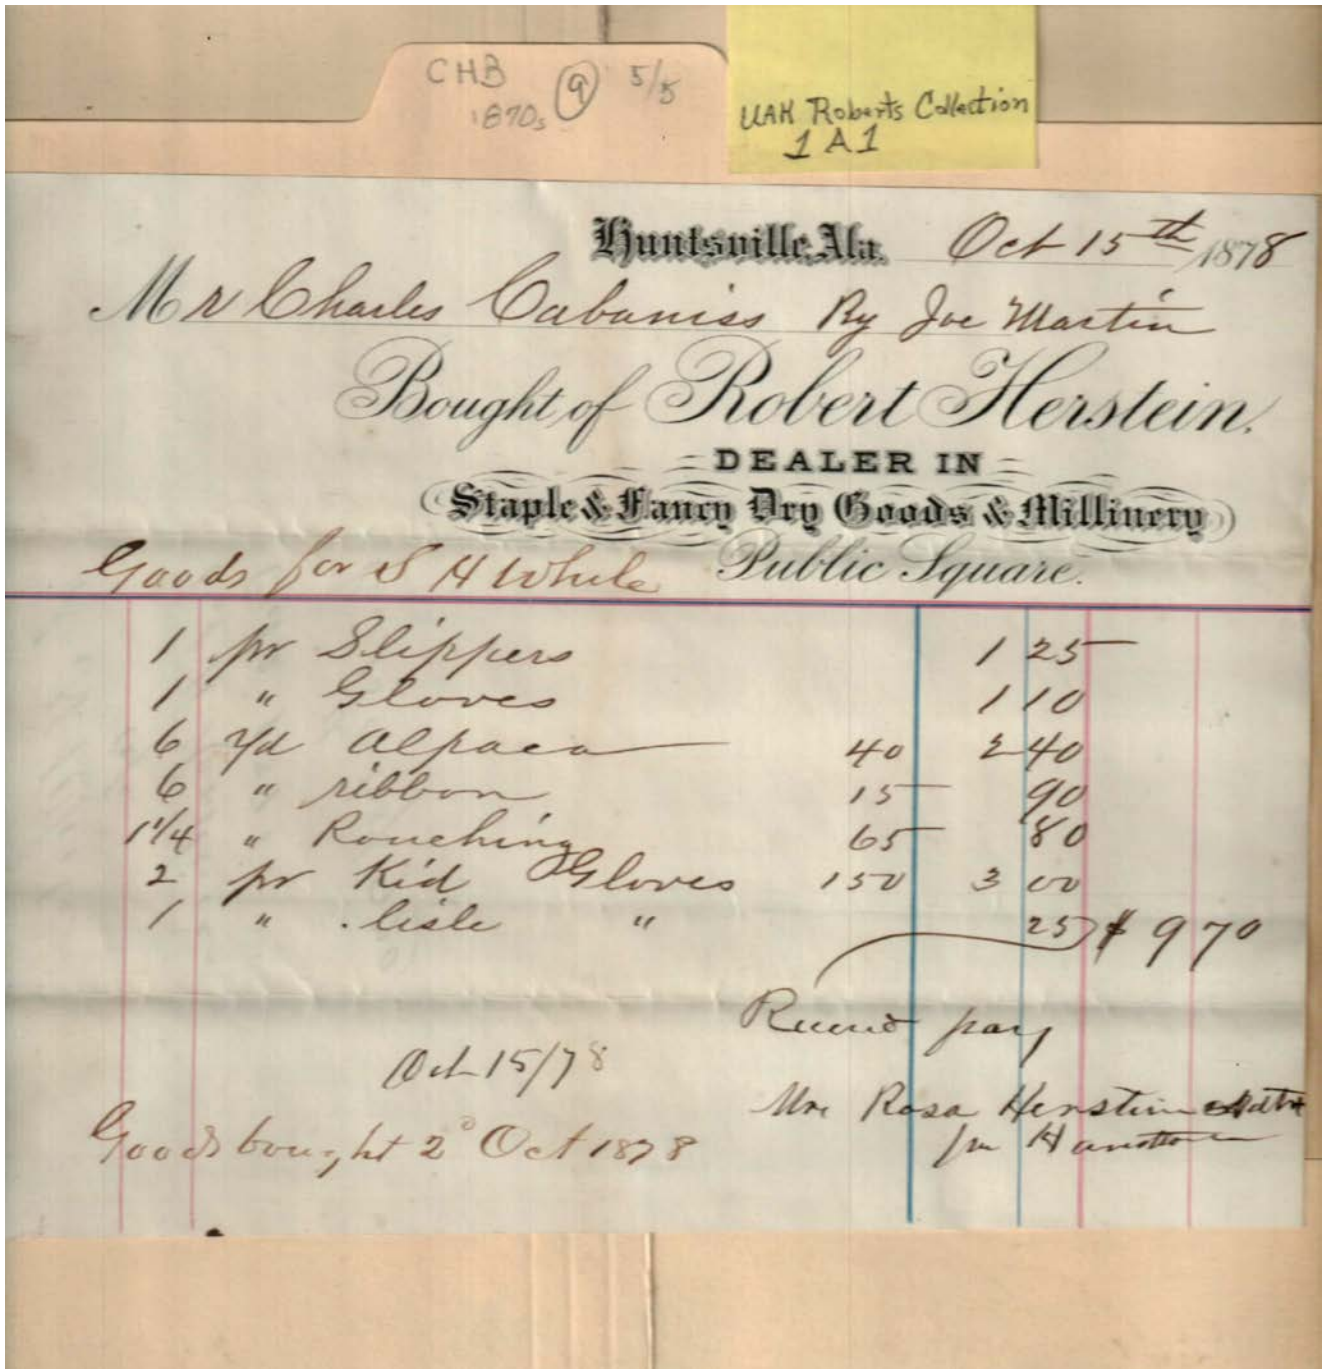 CHB 9 5/5
1870s
UAH Roberts Collection
1 A 1
Huntsville, Ala. Oct 15th 1878
Mr Charles Cabaniss By Joe Martin
Bought of Robert Herstein.
DEALER IN
Staple & Fancy Dry Goods & Millinery
Public Square.
Goods for S H White
1 pr Slippers 1 25
1 " Gloves 1 10
6 yd Alpaca 40 2 40
6 " ribbon 15 90
1 1/4 " Rouching 65 80
2 pr Kid Gloves 150 3 00
1 " lisle " 25 $ 9 70
pay
Oct 15/78
Mrs Rosa Herstein
Goods bought 2 Oct 1878